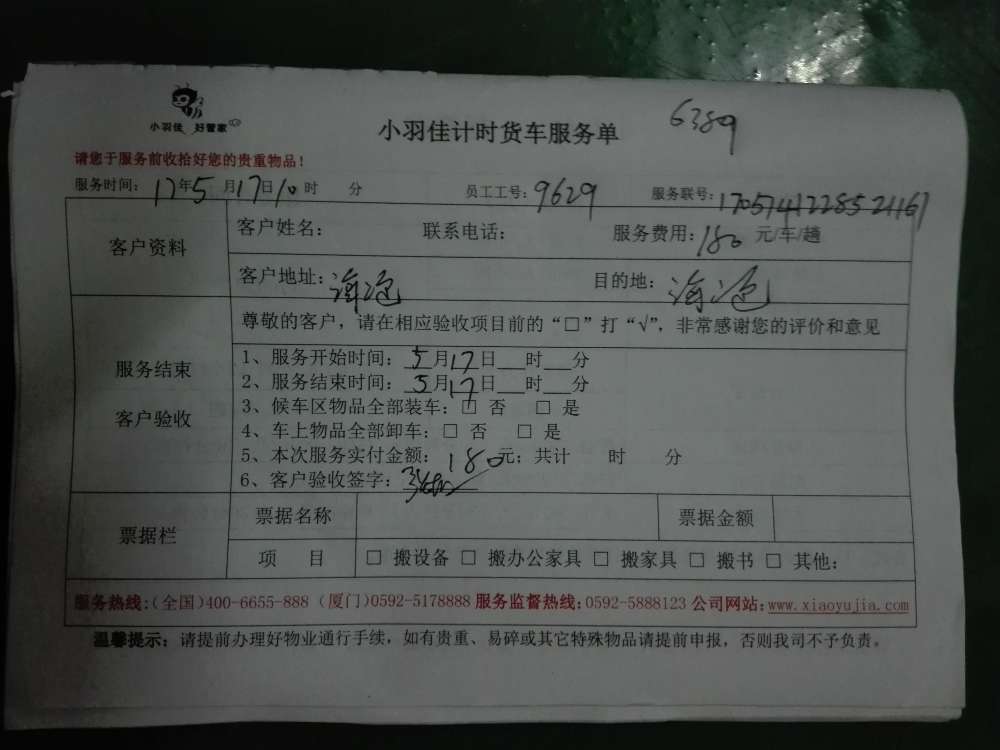 小羽佳 好管家
小羽佳计时货车服务单 6389
请您于服务前收拾好您的贵重物品！
服务时间：17年5月17日10时 分 员工工号：9629 服务联号：
客户资料 客户姓名： 联系电话： 服务费用：180 元/车/趟
客户地址：海沧 目的地：海沧
尊敬的客户，请在相应验收项目前的“□”打“√”，非常感谢您的评价和意见
服务结束
客户验收
1、服务开始时间：5月17日__时__分
2、服务结束时间：5月17日__时__分
3、候车区物品全部装车：□ 否 □ 是
4、车上物品全部卸车：□ 否 □ 是
5、本次服务实付金额：180元；共计 时 分
6、客户验收签字：
票据栏 票据名称 票据金额
项 目 □ 搬设备 □ 搬办公家具 □ 搬家具 □ 搬书 □ 其他：
服务热线：（全国）400-6655-888（厦门）0592-5178888 服务监督热线：0592-5888123 公司网站：www.xiaoyujia.com
温馨提示：请提前办理好物业通行手续，如有贵重、易碎或其它特殊物品请提前申报，否则我司不予负责。